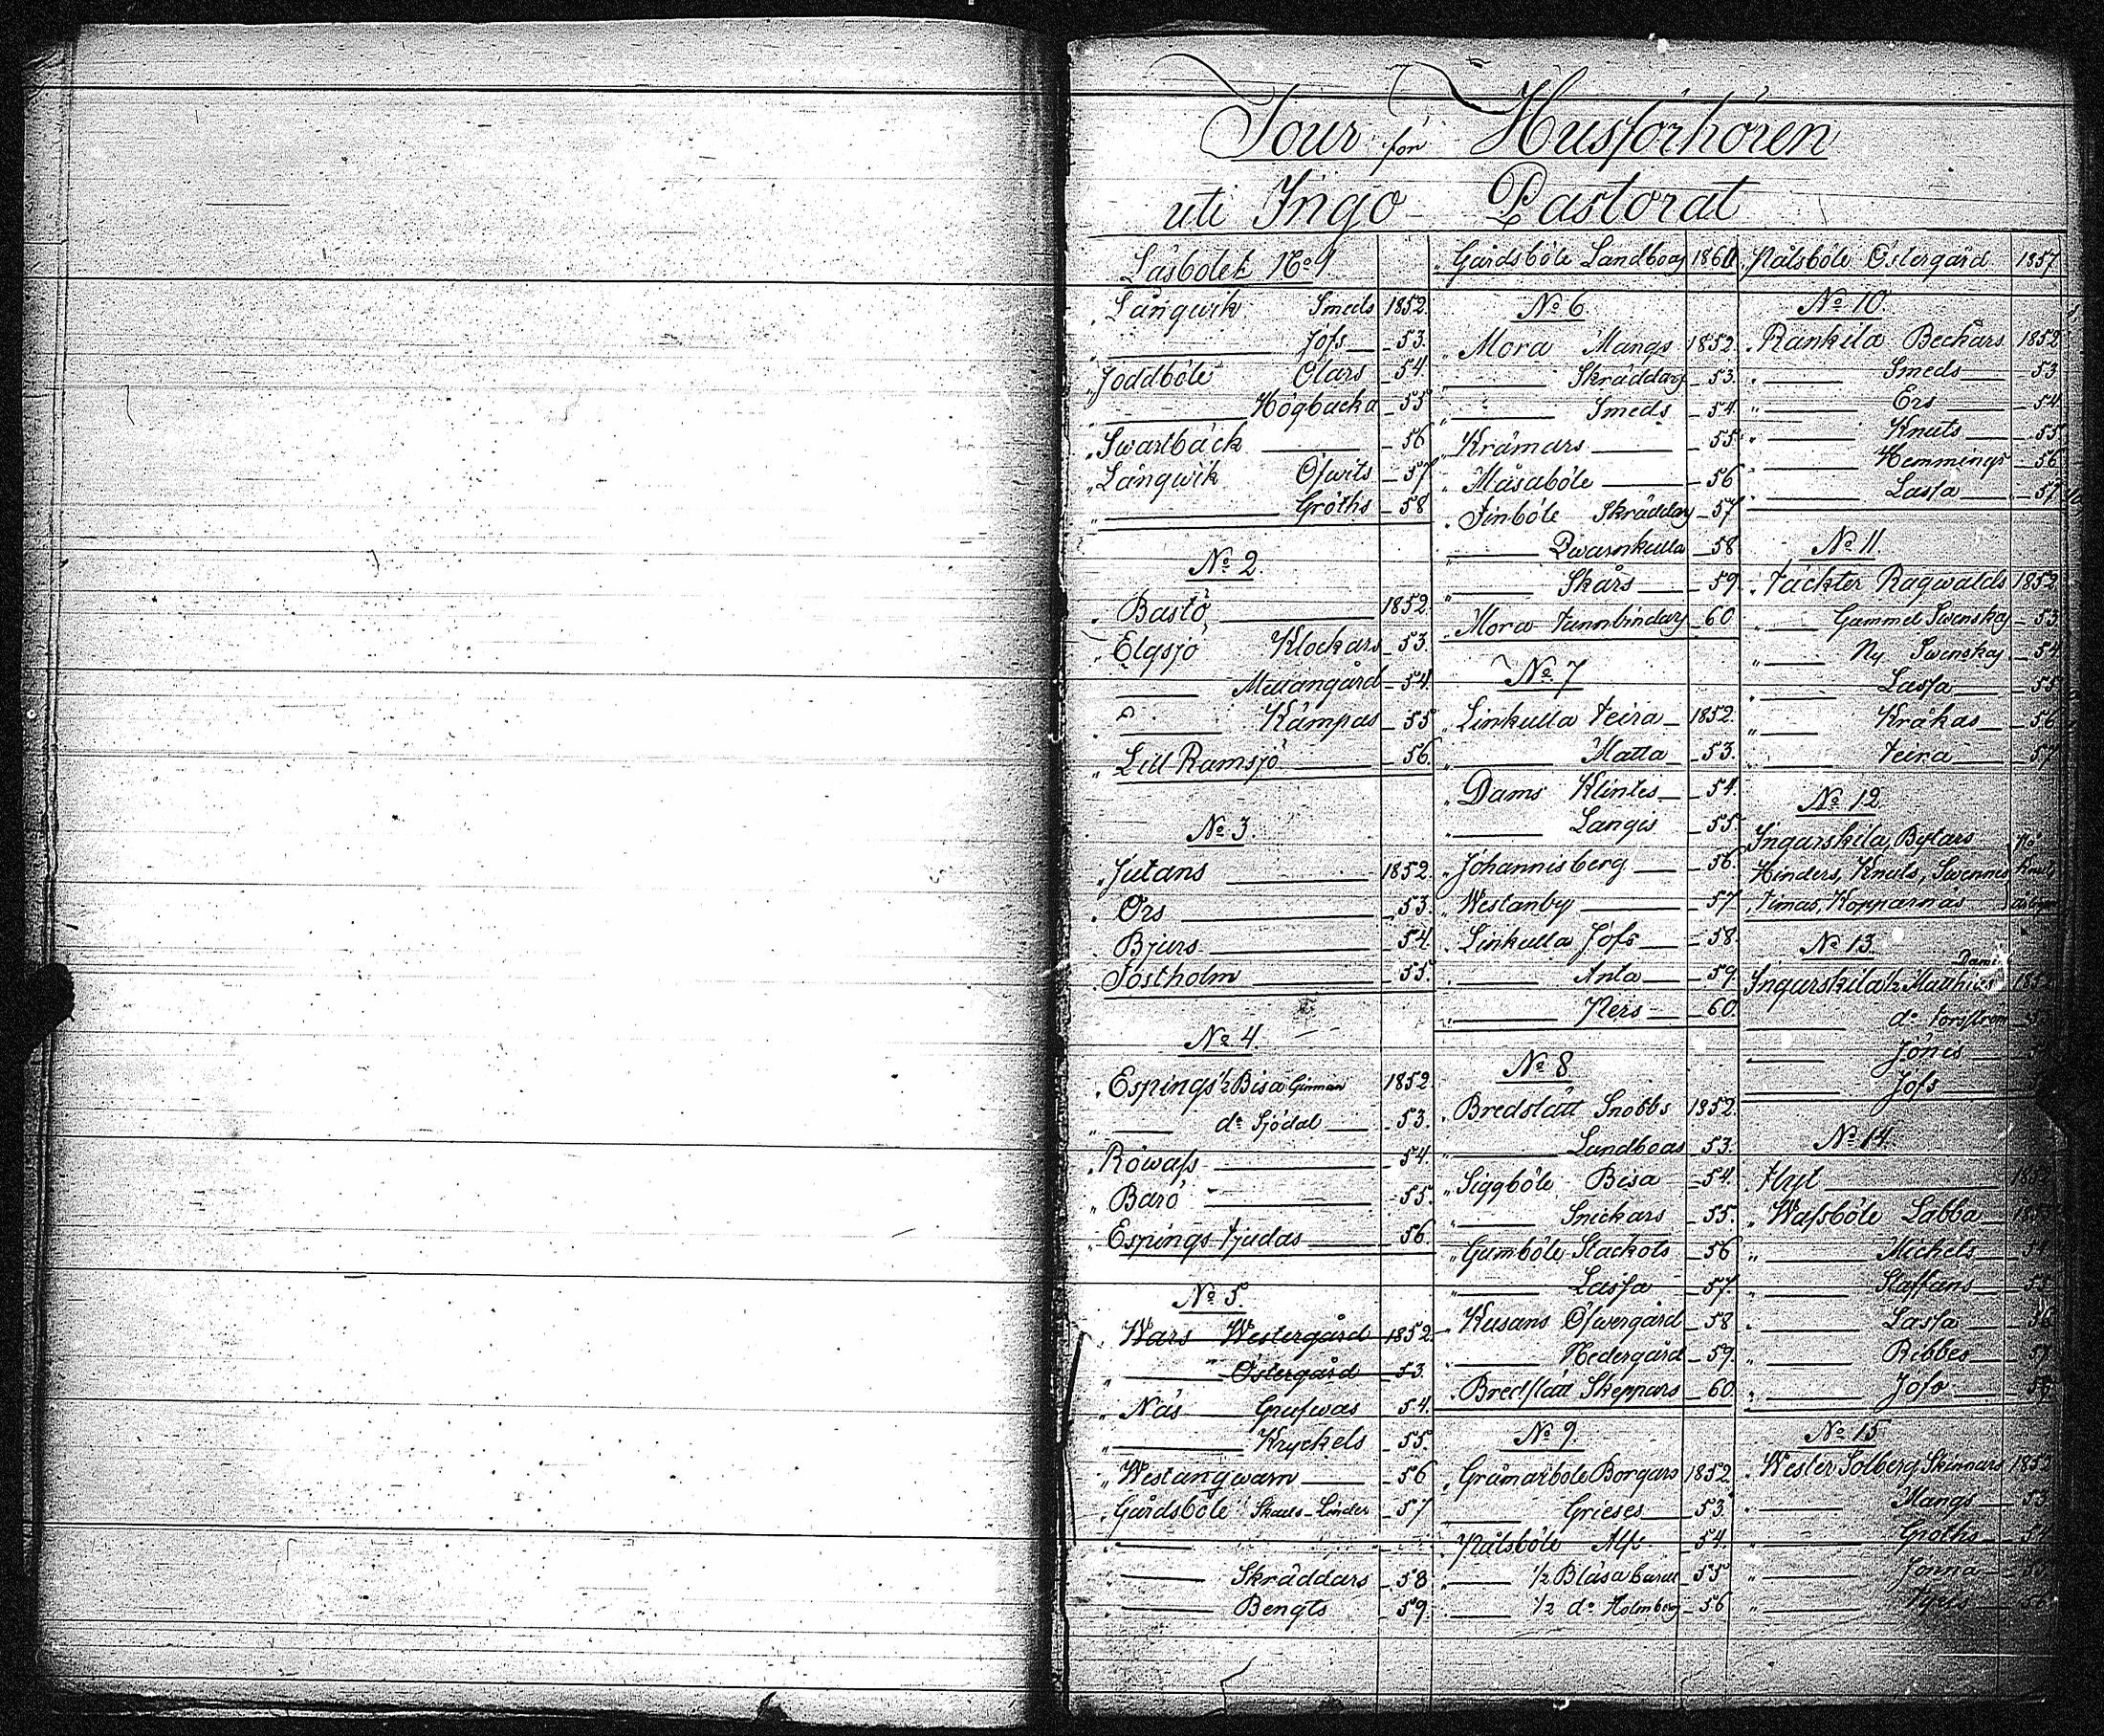 Tour för Husförhören
uti Ingo Pastorat
Läsbolet No 1
Långwik Smeds 1852.
" Jofs 53.
" Joddböle Olars 54
" Högbacka 55
" Swartbäck 56
" Långwik Öfwits 57
" Gröths 58
No 2.
" Bastö 1852.
" Elgsjö Klockars 53.
Mellangård 54.
" Kämpas 55
" Lill Ramsjö 56.
No 3.
" Jutans 1852.
" Örs 53.
" Bjurs 54.
" Sostholm 55.
No 4.
" Espings 1/2 Bisa Ginman 1852.
" do Sjödal 53.
" Röwass 54.
" Barö 55.
" Espings Tjudas 56.
No 5
Wars Westergård 1852.
" Östergård 53.
" Näs Grefwas 54.
" Kryckels 55.
" Westangwarn 56
" Gårdsböle Linder 57
" Skräddars 58
" Bengts 59.
" Gårdsböle Landboas
No 6.
" Mora Mangs 1852.
" Skräddars 53.
" Smeds 54.
" Krämars 55.
" Måsaböle 56
" Finböle Skräddars 57
" Qwarnkulla 58
" Skårs 59.
" Mora Tunnbindars 60
No 7
" Linkulla Teira 1852.
" Matta 53.
" Dams Klintis 54.
" Langis 55.
" Johannisberg 56.
" Westanby 57
" Linkulla Jofs 58.
" Anta 59.
" Pers 60.
No 8
" Bredslätt Snobbs 1852.
" Landboas 53.
" Siggböle Bisa 54.
" Snickars 55.
" Gumböle Stackots 56
" Lassa 57.
" Kusans Öfwergård 58
" Nedergård 59.
" Bredslätt Skeppars 60.
No 9.
" Gråmarböle Borgars 1852.
" Grieses 53.
" Pålsböle Alfs 54.
" 1/2 Blåsa 55
" 1/2 do Holmberg 56
" Pålsböle Östergård 1857
No 10.
" Rankila Beckars 1852
" Smeds 53
" Ers 54
" Knuts 55
" Hemmings 56
" Lassa 57
No 11.
" Täckter Ragwalds 1852
" Gammel Swenskas 53
" Ny Swenskas 54
" Lassa 55
" Kråkas 56
" Teira 57
No 12
Ingarskila, Bytars
Hinders, Knuts, Swennis
Timas, Kopparnäs
No 13.
Ingarskila 1/2 Matthias 1852
do Forsström
Jönis
Jofs
No 14.
" Flyt 1852
" Wassböle Labba
" Michels 54
" Staffans 55
" Lassa 56
" Ribbes 57
" Jofs
No 15
" Wester Solberg Skinnars 1852
" Mangs 53
" Gröths 54
" Jonna 55